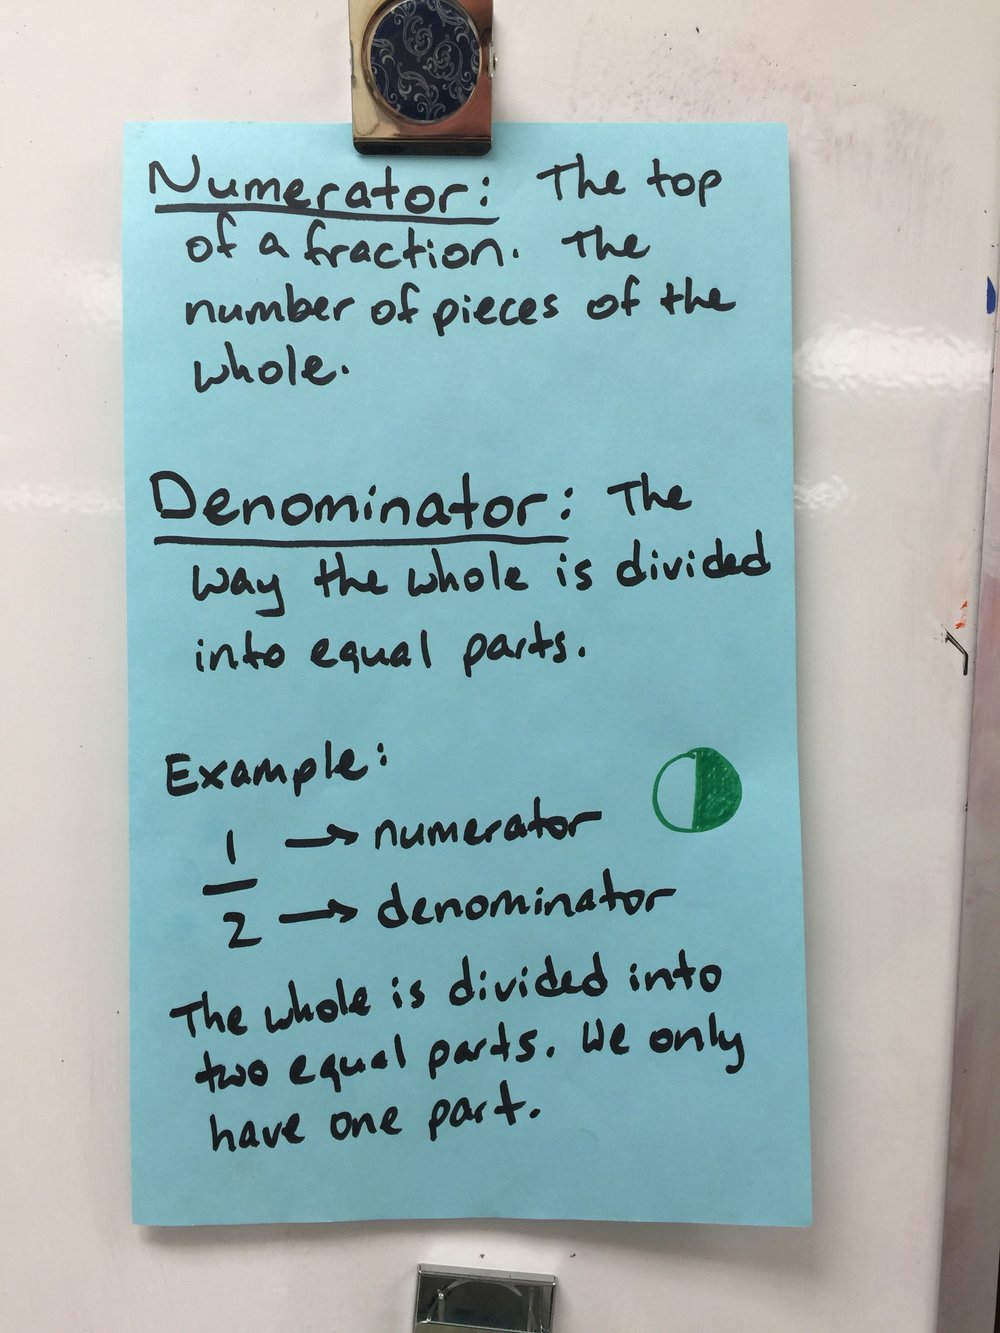 Numerator: The top
of a fraction. The
number of pieces of the
whole.
Denominator: The
way the whole is divided
into equal parts.
Example:
1 → numerator
2 → denominator
The whole is divided into
two equal parts. We only
have one part.